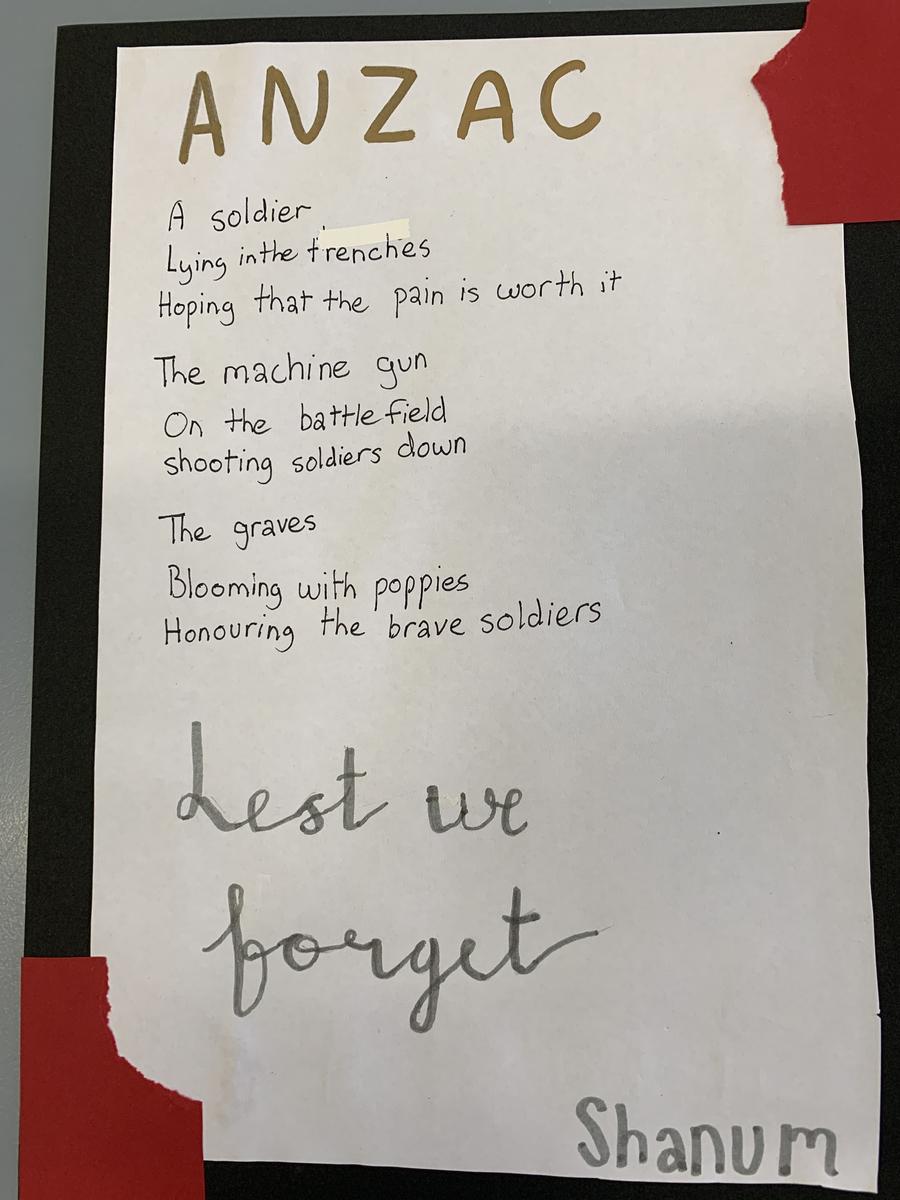 ANZAC
A soldier
Lying in the trenches
Hoping that the pain is worth it
The machine gun
On the battlefield
shooting soldiers down
The graves
Blooming with poppies
Honouring the brave soldiers
Lest we
forget
Shanum